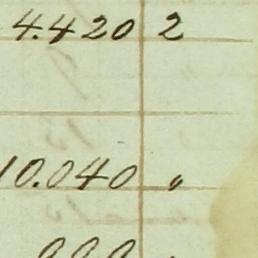 4.420 2
10.040 "